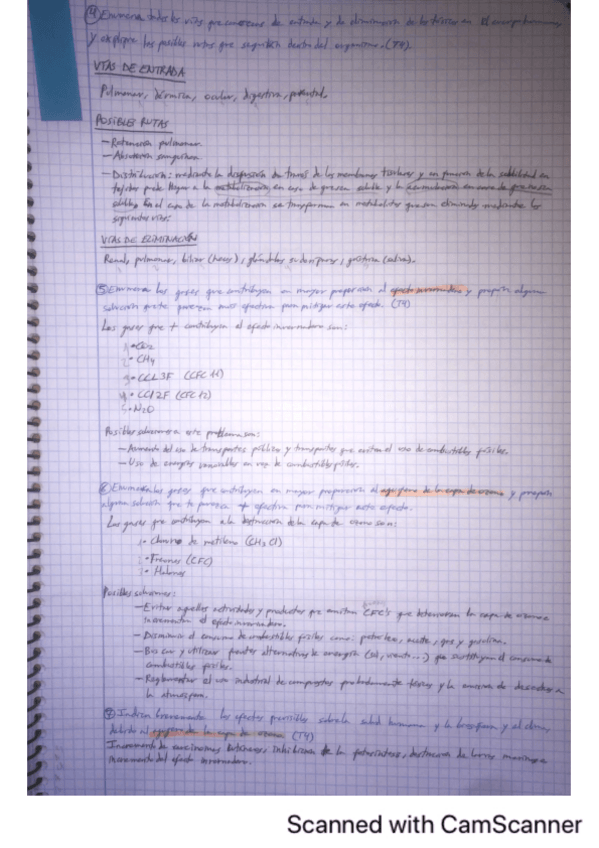 ④ Enumera todas las vías que conozcas de entrada y de eliminación de los tóxicos en el cuerpo humano
y explique las posibles rutas que seguirían dentro del organismo. (T4)
VÍAS DE ENTRADA
Pulmonar, dérmica, ocular, digestiva, parental.
POSIBLES RUTAS
- Retención pulmonar
- Absorción sanguínea
- Distribución: mediante la dispersión a través de las membranas tisulares y en función de la solubilidad en
tejidos puede llegar a la metabolización en caso de ser soluble y la acumulación en caso de
soluble. En el caso de la metabolización se transforman en metabolitos que son eliminados mediante las
siguientes vías:
VÍAS DE ELIMINACIÓN
Renal, pulmonar, biliar (heces), glándulas sudoríparas, gástrica (saliva).
⑤ Enumera los gases que contribuyen en mayor proporción al efecto invernadero y propón alguna
solución que te parezca más efectiva para mitigar este efecto. (T4)
Los gases que + contribuyen al efecto invernadero son:
1 • CO2
2 • CH4
3 • CCL3F (CFC 11)
4 • CCl2F (CFC 12)
5 • N2O
Posibles soluciones a este problema son:
- Aumento del uso de transportes públicos y transportes que eviten el uso de combustibles fósiles.
- Uso de energías renovables en vez de combustibles fósiles.
⑥ Enumera los gases que contribuyen en mayor proporción al agujero de la capa de ozono y propón
alguna solución que te parezca + efectiva para mitigar este efecto.
Los gases que contribuyen a la destrucción de la capa de ozono son:
1 • Cloruro de metileno (CH3Cl)
2 • Freones (CFC)
3 • Halones
Posibles soluciones:
- Evitar aquellas actividades y productos que emitan CFC's que deterioran la capa de ozono e
incrementan el efecto invernadero.
- Disminuir el consumo de combustibles fósiles como: petróleo, aceite, gas y gasolina.
- Buscar y utilizar fuentes alternativas de energía (sol, viento...) que sustituyan el consumo de
combustibles fósiles.
- Reglamentar el uso industrial de compuestos probadamente tóxicos y la emisión de desechos a
la atmósfera.
⑦ Indica brevemente los efectos previsibles sobre la salud humana y la biosfera y el clima
debido al agujero de la capa de ozono (T4)
Incremento de carcinomas cutáneos, inhibición de la fotosíntesis, destrucción de larvas marinas e
incremento del efecto invernadero.
Scanned with CamScanner